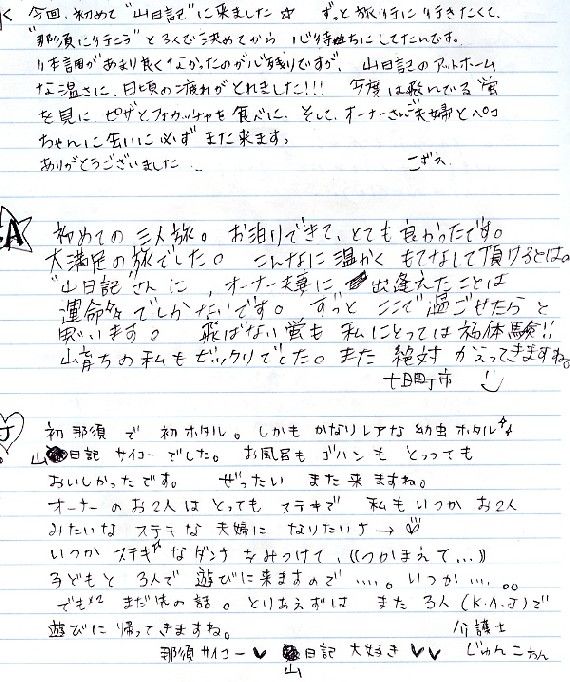 く 今回、初めて"山日記"に来ました☆ ずっと旅行に行きたくて、
"那須に行こう"と3人で決めてから 心待ちにしてたんです。
体調があまり良くなかったのが心残りですが、山日記のアットホーム
な温さに、日頃の疲れがとれました!!! 今度は飛んでる蛍
を見に ピザとフォカッチャを食べに、そして、オーナーさんご夫婦とペコ
ちゃんに会いに必ずまた来ます。
ありがとうございました
A 初めての 三人旅。 お泊りできて、とても良かったです。
大満足の旅でした。 こんなに温かく もてなして頂けるとは。
"山日記"さんに、オーナー夫妻に 出逢えたことは
運命多でしかないです。 ずっと ここで過ごせたらと
思います。 飛ばない蛍も 私にとっては初体験!!
山育ちの私もビックリでした。また 絶対 かえってきますね。
十日町市
J 初 那須 で 初ホタル。しかも かなりレアな 幼虫ホタル
山日記 サイコーでした。 お風呂も ゴハンも とっっても
おいしかったです。 ぜったい また来ますね。
オーナーの お2人は とっても ステキで 私もいつか お2人
みたいな ステキな 夫婦に なりたいナ→♡
いつか ステキなダンナ をみつけて、((つかまえて...))
子どもと 3人で 遊びに来ますので....。いつか....。。
でも まだ先の話。とりあえずは また 3人(K.A.J)で
遊びに 帰ってきますね。 介護士
那須 サイコー♥ 山日記 大好き♥♥ じゅんこちん